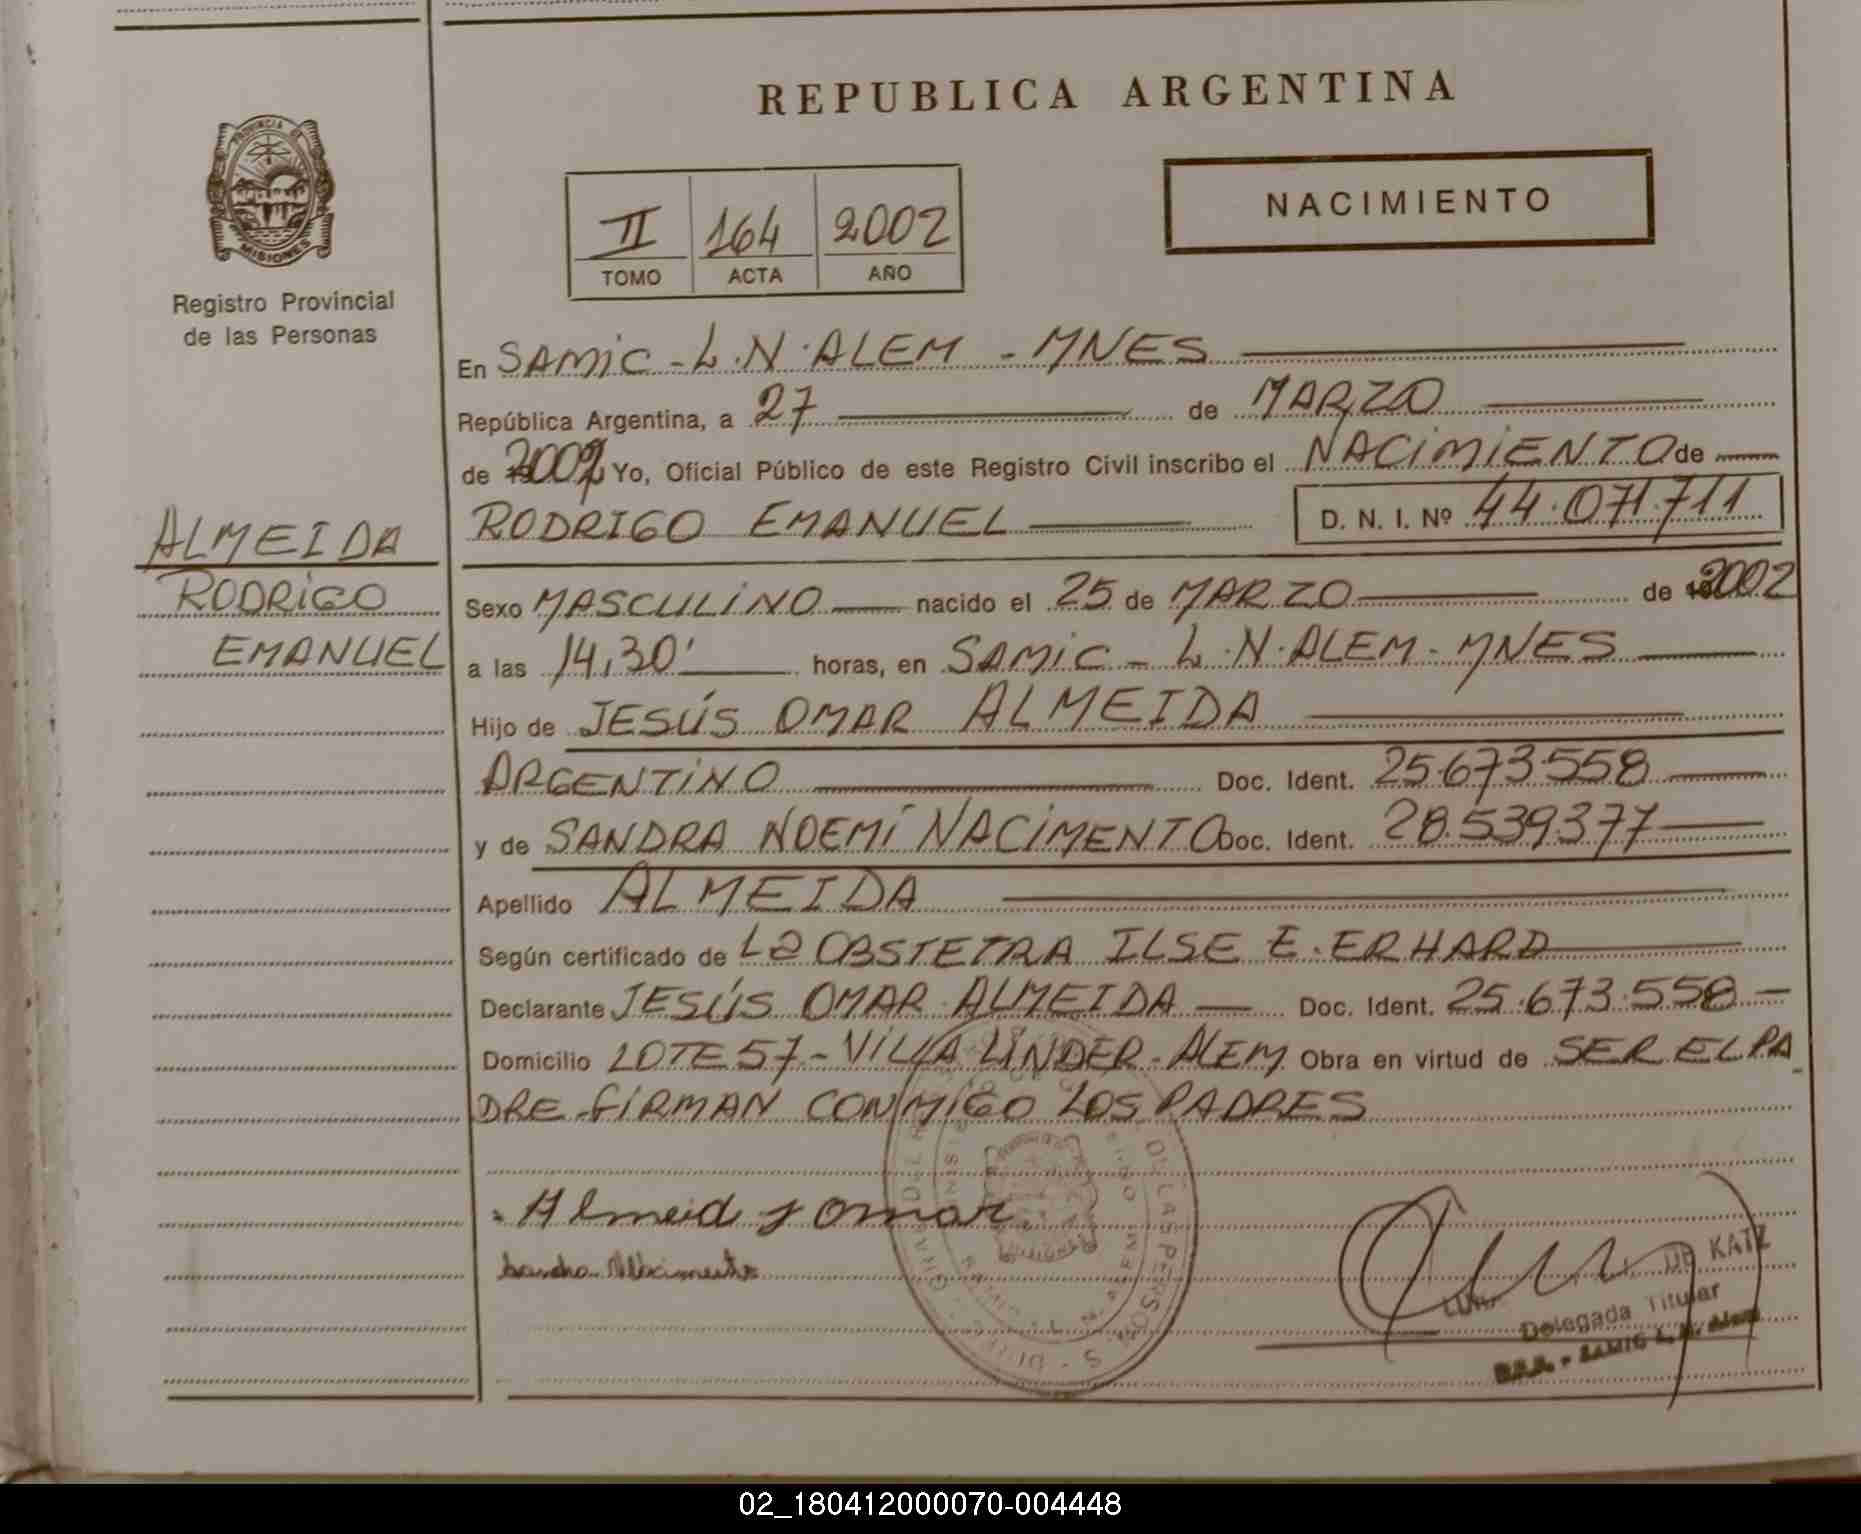 REPUBLICA ARGENTINA
PROVINCIA DE
MISIONES
Registro Provincial
de las Personas
II 164 2002
TOMO ACTA AÑO
NACIMIENTO
En SAMIC - L.N. ALEM - MNES
República Argentina, a 27 de MARZO
de 2002 Yo, Oficial Público de este Registro Civil inscribo el NACIMIENTO de
RODRIGO EMANUEL D. N. I. Nº 44.071.711
ALMEIDA
RODRIGO
EMANUEL
Sexo MASCULINO nacido el 25 de MARZO de 2002
a las 14,30' horas, en SAMIC - L.N. ALEM - MNES
Hijo de JESÚS OMAR ALMEIDA
ARGENTINO Doc. Ident. 25.673.558
y de SANDRA NOEMÍ NACIMENTO Doc. Ident. 28.539.377
Apellido ALMEIDA
Según certificado de La OBSTETRA ILSE E. ERHARD
Declarante JESÚS OMAR ALMEIDA Doc. Ident. 25.673.558
Domicilio LOTE 57 - VILLA LINDER - ALEM Obra en virtud de SER EL PA
DRE - FIRMAN CONMIGO LOS PADRES
Almeida J omar
Sandra Nacimento
DE KATZ
Delegada Titular
SAMIC L. N. Alem
02_180412000070-004448